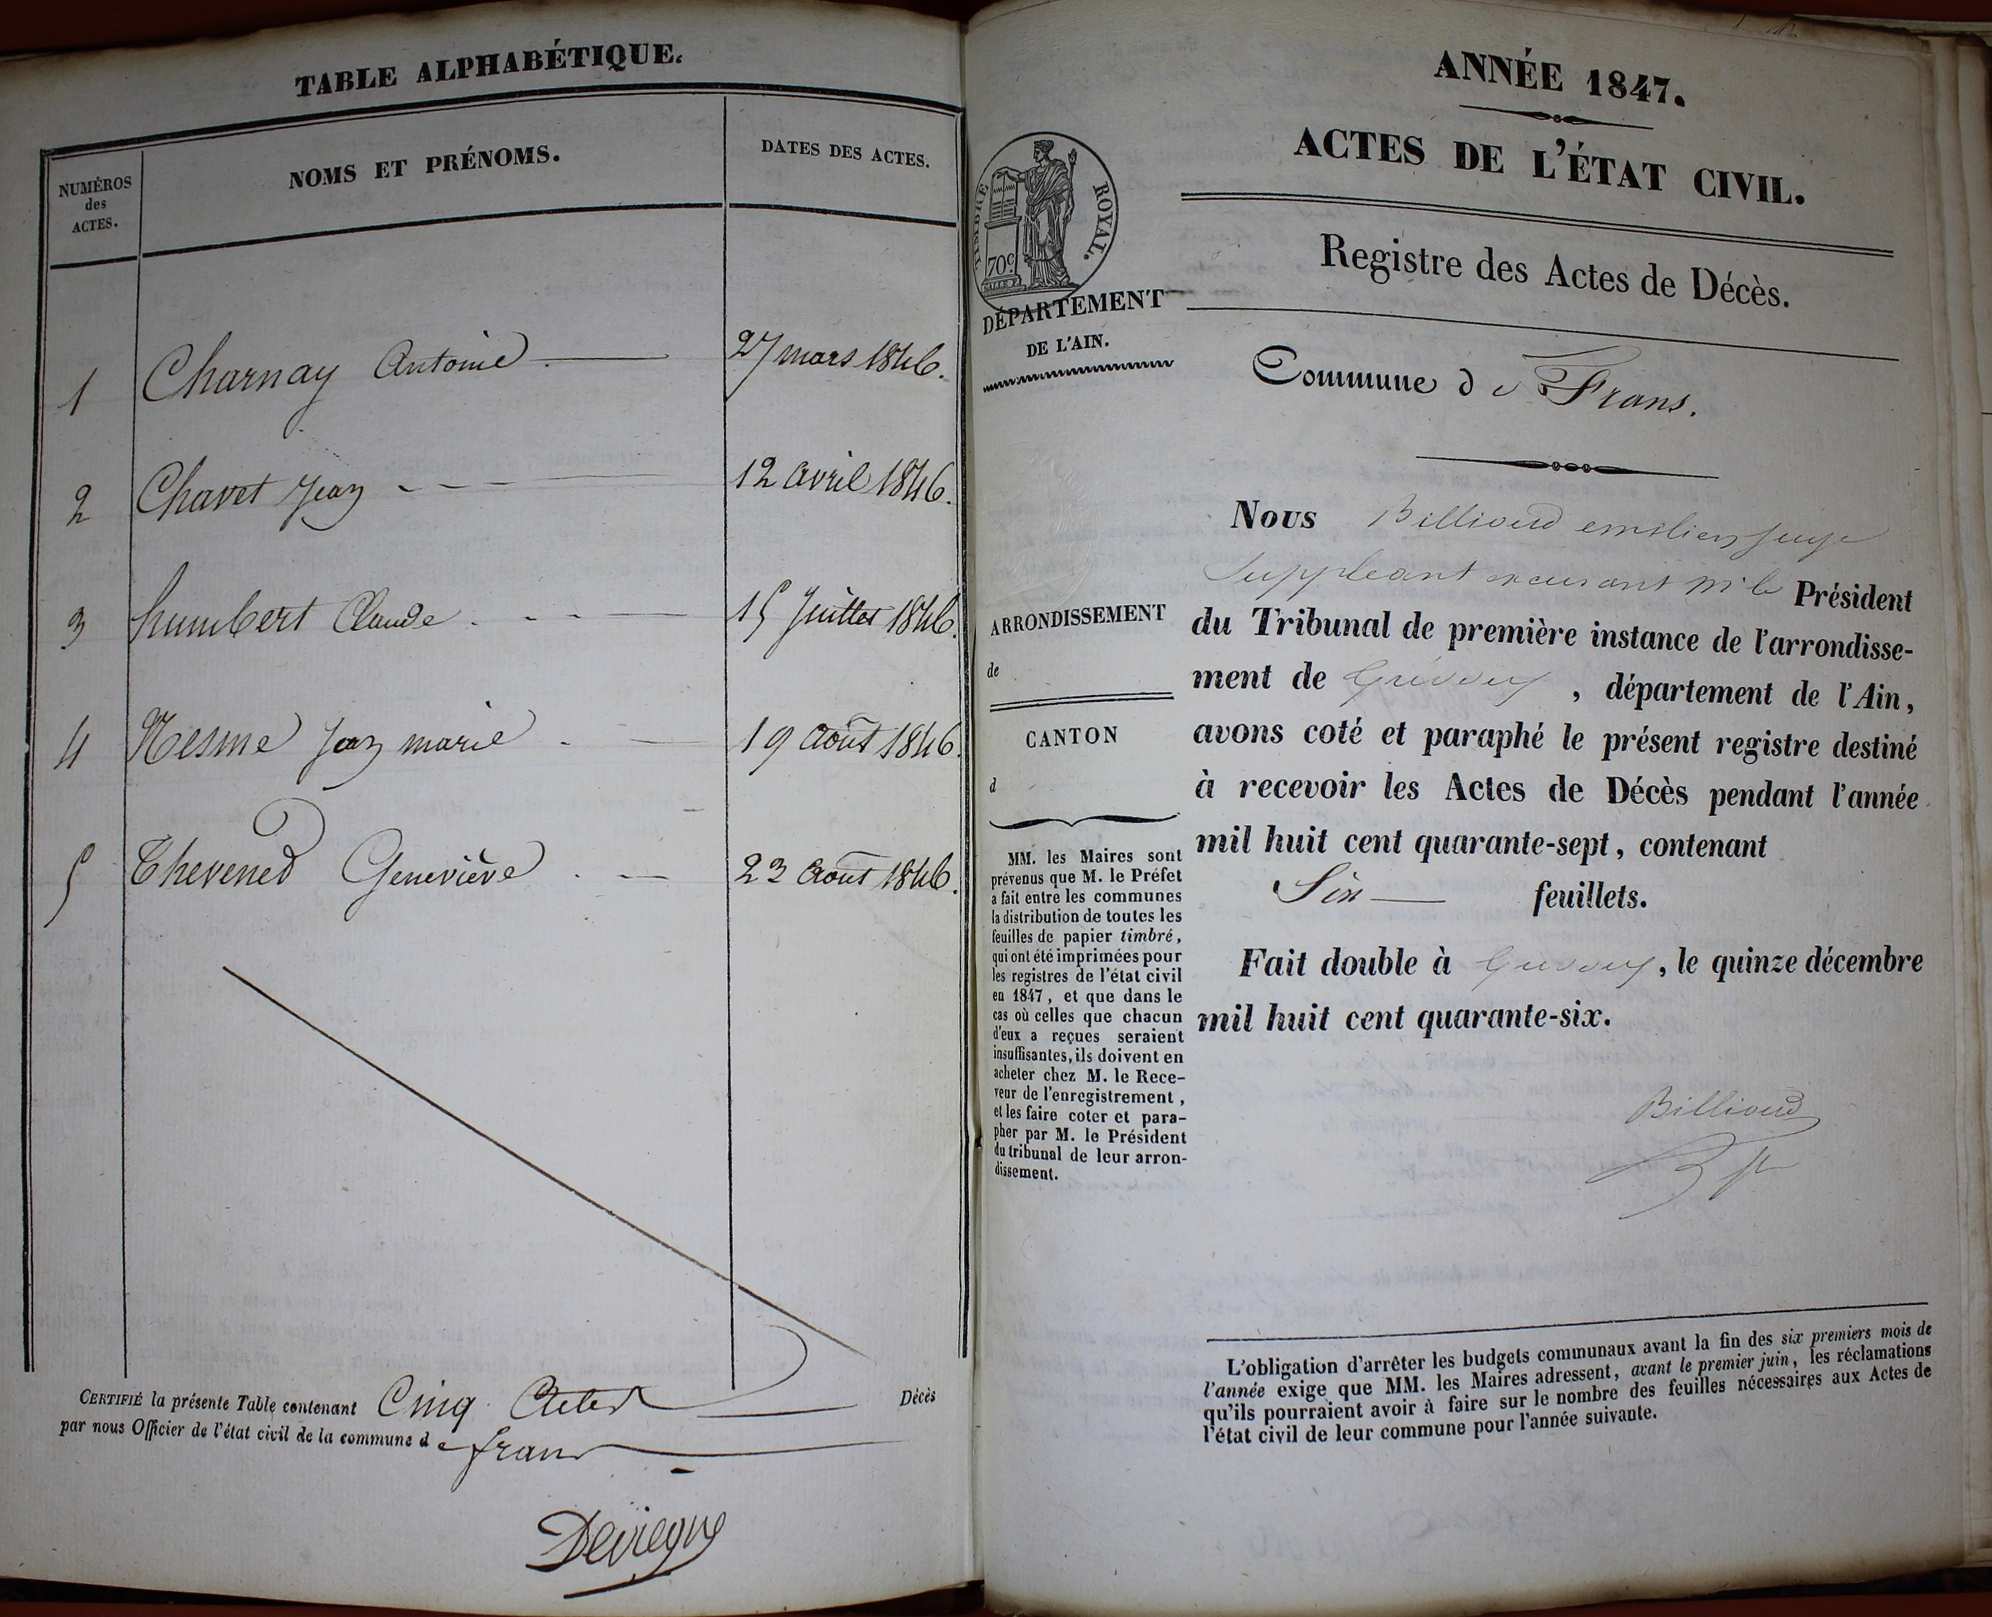 TABLE ALPHABÉTIQUE.
NUMÉROS
des
ACTES.
NOMS ET PRÉNOMS.
DATES DES ACTES.
1 Charnay Antoine 27 mars 1846.
2 Chavet Jean 12 avril 1846.
3 humbert Claude 15 Juillet 1846.
4 Nesme Jean marie 19 Août 1846.
5 Thevened Geneviève 23 Août 1846.
CERTIFIÉ la présente Table contenant Cinq Actes Décès
par nous Officier de l'état civil de la commune de frans
ANNÉE 1847.
ACTES DE L'ÉTAT CIVIL.
Registre des Actes de Décès.
TIMBRE ROYAL.
70c
DÉPARTEMENT
DE L'AIN.
Commune de Frans.
ARRONDISSEMENT
de
CANTON
d
MM. les Maires sont
prévenus que M. le Préfet
a fait entre les communes
la distribution de toutes les
feuilles de papier timbré,
qui ont été imprimées pour
les registres de l'état civil
en 1847, et que dans le
cas où celles que chacun
d'eux a reçues seraient
insuffisantes, ils doivent en
acheter chez M. le Rece-
veur de l'enregistrement,
et les faire coter et para-
pher par M. le Président
du tribunal de leur arron-
dissement.
Nous Billioud emilien juge
Suppleant M. le Président
du Tribunal de première instance de l'arrondisse-
ment de Trévoux, département de l'Ain,
avons coté et paraphé le présent registre destiné
à recevoir les Actes de Décès pendant l'année
mil huit cent quarante-sept, contenant
Six feuillets.
Fait double à Trévoux, le quinze décembre
mil huit cent quarante-six.
Billioud
L'obligation d'arrêter les budgets communaux avant la fin des six premiers mois de
l'année exige que MM. les Maires adressent, avant le premier juin, les réclamations
qu'ils pourraient avoir à faire sur le nombre des feuilles nécessaires aux Actes de
l'état civil de leur commune pour l'année suivante.